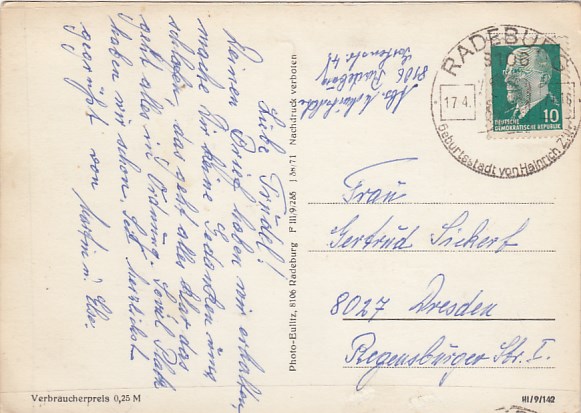 Liebe Trudel!
Deinen Brief haben wir erhalten,
mache Dir keine Gedanken
das geht alles klar, das
geht alles in Ordnung.
haben wir schon. Sei herzlichst
gegrüßt von
Abs.
8106 Radeburg
Photo-Eulitz, 8106 Radeburg F III/9/265 J 5n-71 Nachdruck verboten
RADEBURG
8106
17.4.
Geburtsstadt von Heinrich Zille
10
DEUTSCHE
DEMOKRATISCHE REPUBLIK
Frau
Gertrud Sickert
8027 Dresden
Regensburger Str. 1.
Verbraucherpreis 0,25 M
III/9/142